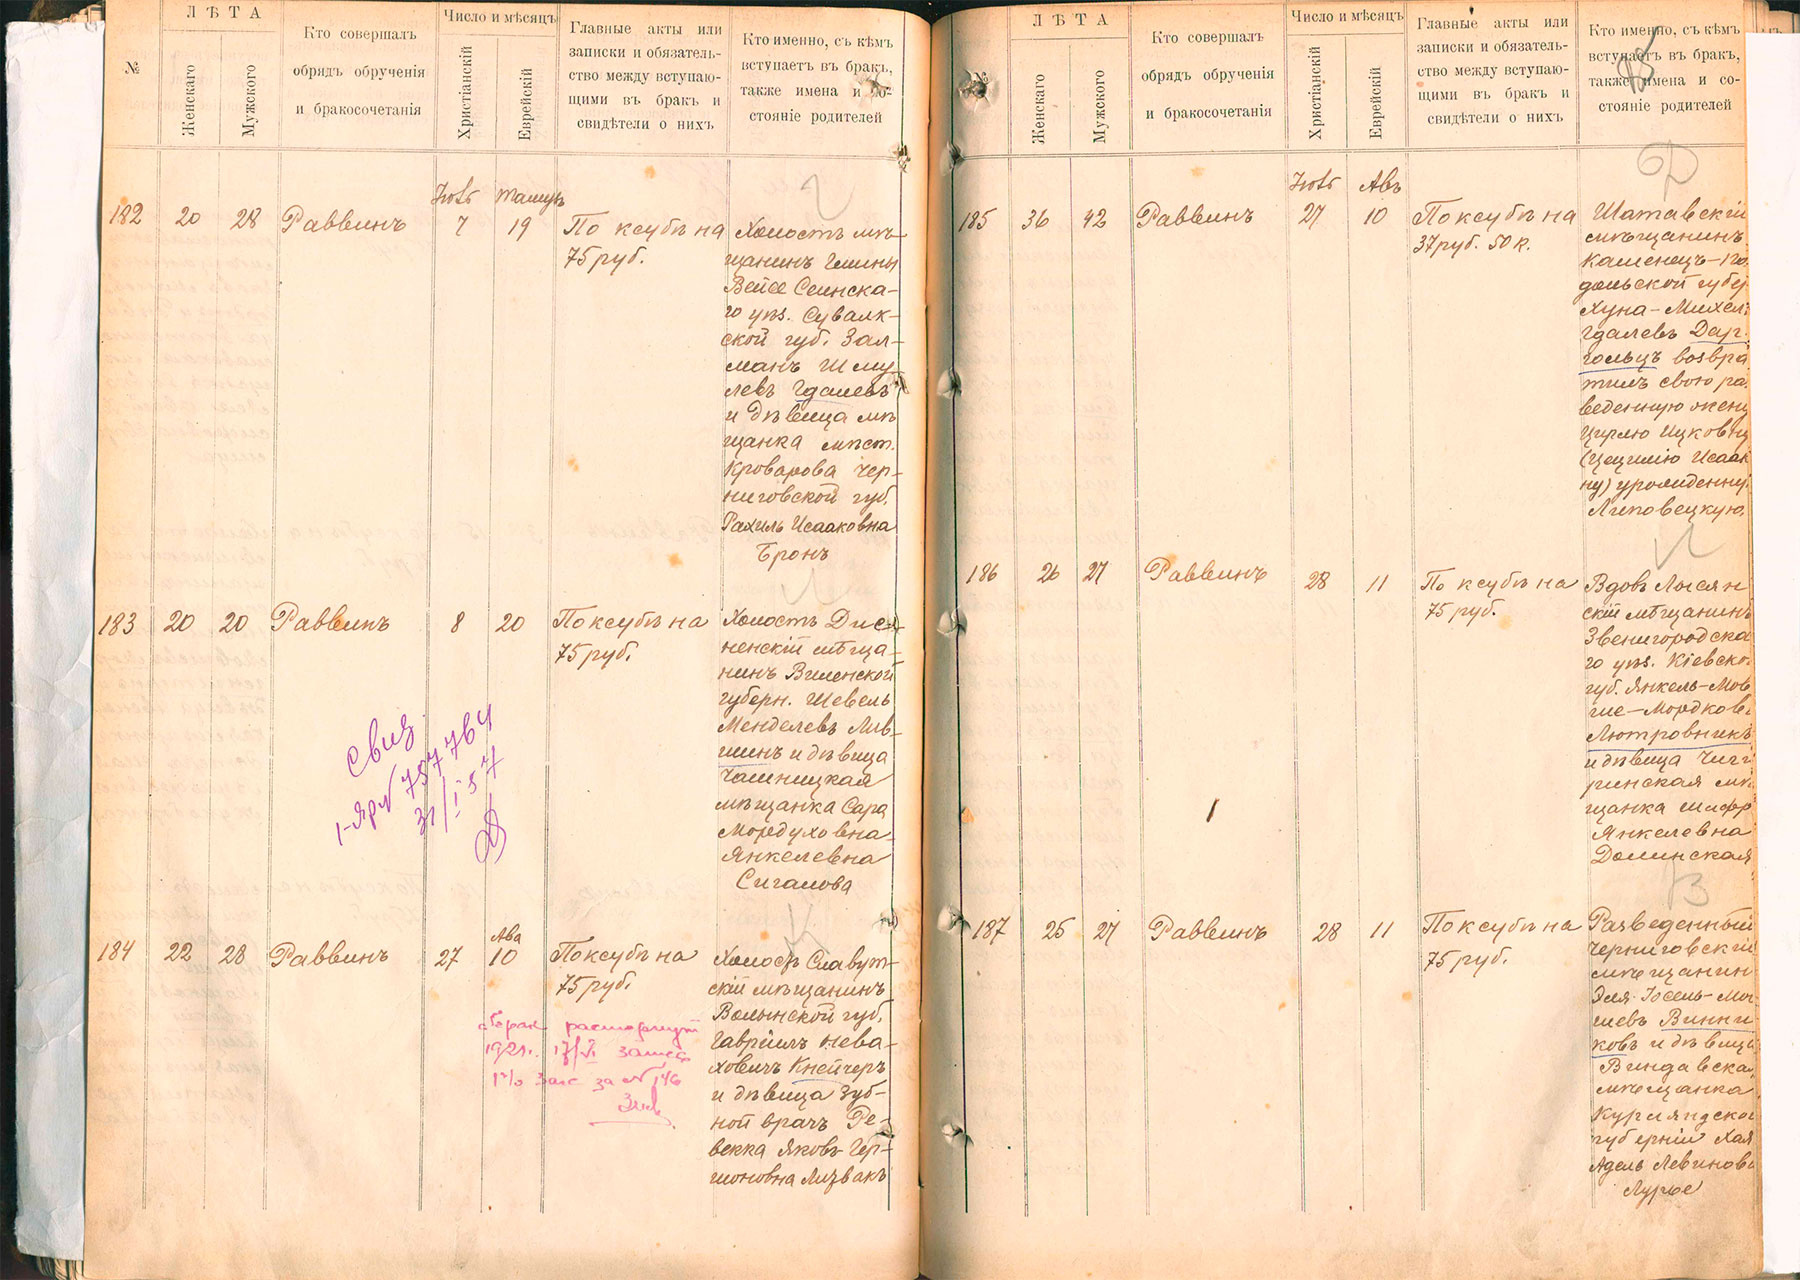 №
ЛѢТА
Женскаго
Мужского
Кто совершалъ
обрядъ обрученія
и бракосочетанія
Число и мѣсяцъ
Христіанскій
Еврейскій
Главные акты или
записки и обязатель-
ство между вступаю-
щими въ бракъ и
свидѣтели о нихъ
Кто именно, съ кѣмъ
вступаетъ въ бракъ,
также имена и со-
стояніе родителей
182 20 28 Раввинъ
7 19
По ксубѣ на
75 руб.
Холостъ мѣ-
щанинъ Гмины
Вейсе Сейнска-
го уѣз. Сувалк-
ской губ. Зал-
манъ Шму-
левъ Гдалевъ
и дѣвица мѣ
щанка мѣст.
Кроварова Чер-
ниговской губ.
Рахиль Исааковна
Бронъ
183 20 20 Раввинъ 8 20
По ксубѣ на
75 руб.
Холостъ Дис-
ненскій мѣща-
нинъ Виленской
губерн. Шевель
Менделевъ Лив-
шинъ и дѣвица
Чашницкая
мѣщанка Сара
Мордуховна-
Янкелевна
Сигалова
757764
31/I 57
184 22 28 Раввинъ 27
Ава
10
По ксубѣ на
75 руб.
Холостъ Славут-
скій мѣщанинъ
Волынской губ.
Гавріилъ Нева-
ховичъ Кнейчеръ
и дѣвица Зуб-
ной врачъ Ре-
векка Яковъ-Гер-
шоновна Лизвакъ
расторгнут
№
ЛѢТА
Женскаго
Мужского
Кто совершалъ
обрядъ обрученія
и бракосочетанія
Число и мѣсяцъ
Христіанскій
Еврейскій
Главные акты или
записки и обязатель-
ство между вступаю-
щими въ бракъ и
свидѣтели о нихъ
Кто именно, съ кѣмъ
вступаетъ въ бракъ,
также имена и со-
стояніе родителей
Ф
Авъ
185 36 42 Раввинъ 27 10
По ксубѣ на
37 руб. 50 к.
Шатавскій
мѣщанинъ
Каменецъ-По
дольской губер
Хуна-Михель
Гдалевъ Дар-
гольцъ возвра
тилъ свою ра
веденную жену
Цирлю Ицковну
(Цецилію Исаак
ну) урожденну
Липовецкую.
186 26 27 Раввинъ 28 11
По ксубѣ на
75 руб.
Вдовъ Лысян
скій мѣщанинъ
Звенигородска
го уѣз. Кіевско
губ. Янкель-Мов
ше-Мордкове
Лютровникъ
и дѣвица Чиги
ринская мѣ
щанка Шифр
Янкелевна
Долинская
В
187 25 27 Раввинъ 28 11
По ксубѣ на
75 руб.
Разведенный
Черниговскій
мѣщанин
Эля-Іосель-Мов
шевъ Винни
ковъ и дѣвица
Виндавска
мѣщанка
Курляндско
губерніи Хая
Адель Левинов
Лурье